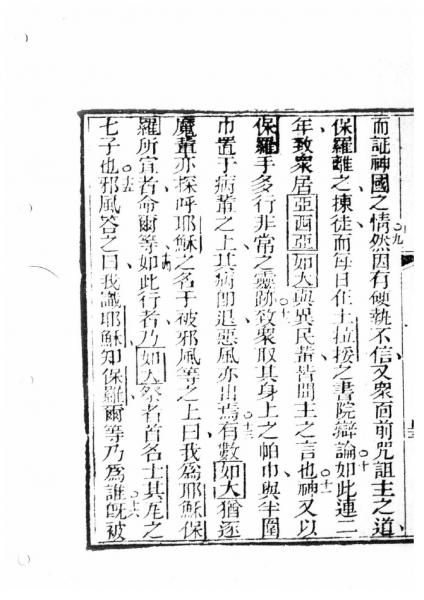 而証神國之情○九然因有硬執不信又衆面前咒詛主之道
保羅離之揀徒而每日在土拉挼之書院辯論○十如此連二
年致衆居亞西亞如大與異民輩皆聞主之言也○十一神又以
保羅手多行非常之靈跡○十二致衆取其身上之帕巾與半圍
巾置于病輩之上其病卽退惡風亦出焉○十三有數如大猶逐
魔輩亦探呼耶穌之名于被邪風等之上曰我爲耶穌保
羅所宣者命爾等○十四如此行者乃如大祭者首名士其瓦之
七子也○十五邪風答之曰我識耶穌知保羅爾等乃爲誰○十六旣被